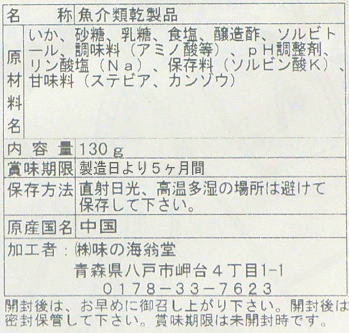 名　　称 魚介類乾製品
原材料名 いか、砂糖、乳糖、食塩、醸造酢、ソルビト
ール、調味料（アミノ酸等）、ｐＨ調整剤、
リン酸塩（Ｎａ）、保存料（ソルビン酸Ｋ）、
甘味料（ステビア、カンゾウ）
内 容 量 130ｇ
賞味期限 製造日より５ヶ月間
保存方法 直射日光、高温多湿の場所は避けて
保存して下さい。
原産国名 中国
加工者： ㈱味の海翁堂
青森県八戸市岬台４丁目1-1
０１７８－３３－７６２３
開封後は、お早めに御召し上がり下さい。開封後は
密封保管して下さい。賞味期限は未開封時です。